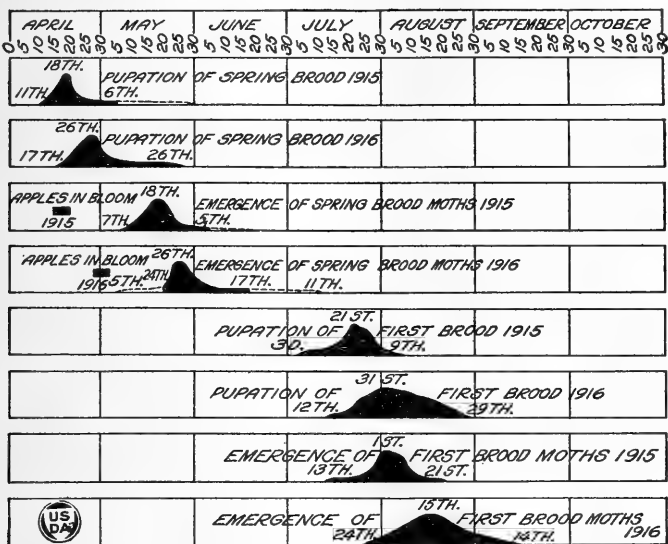 APRIL MAY JUNE JULY AUGUST SEPTEMBER OCTOBER
0 5 10 15 20 25 30 5 10 15 20 25 30 5 10 15 20 25 30 5 10 15 20 25 30 5 10 15 20 25 30 5 10 15 20 25 30 5 10 15 20 25 30
18TH.
PUPATION OF SPRING BROOD 1915
11TH. 6TH.
26TH.
PUPATION OF SPRING BROOD 1916
17TH. 26TH.
APPLES IN BLOOM 18TH. EMERGENCE OF SPRING BROOD MOTHS 1915
1915 7TH. 5TH.
APPLES IN BLOOM 26TH. EMERGENCE OF SPRING BROOD MOTHS 1916
1916 5TH. 24TH. 17TH. 11TH.
21ST.
PUPATION OF FIRST BROOD 1915
3D. 9TH.
31ST.
PUPATION OF FIRST BROOD 1916
12TH. 29TH.
1ST.
EMERGENCE OF FIRST BROOD MOTHS 1915
13TH. 21ST.
15TH.
US EMERGENCE OF FIRST BROOD MOTHS
DA 24TH. 14TH. 1916